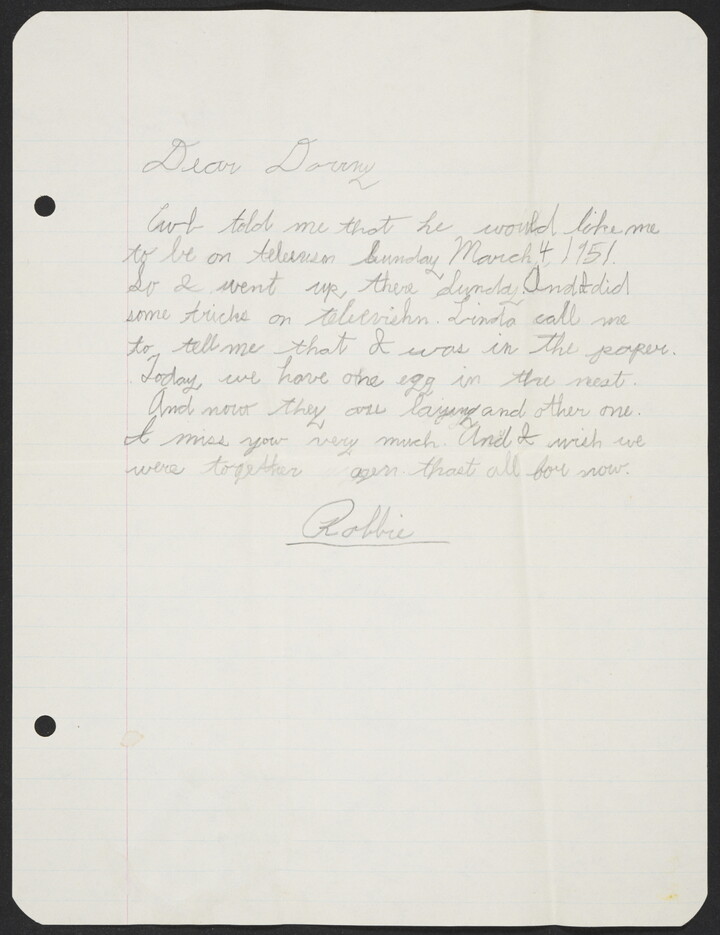 Dear Danny
told me that he would like me
to be on televison Sunday March 4 1951.
So I went up there Sunday. And I did
some tricks on televishn. Linda call me
to tell me that I was in the paper.
Today we have one egg in the nest.
And now they are laying and other one.
I miss you very much. And I wish we
were together agen thast all for now.
Robbie